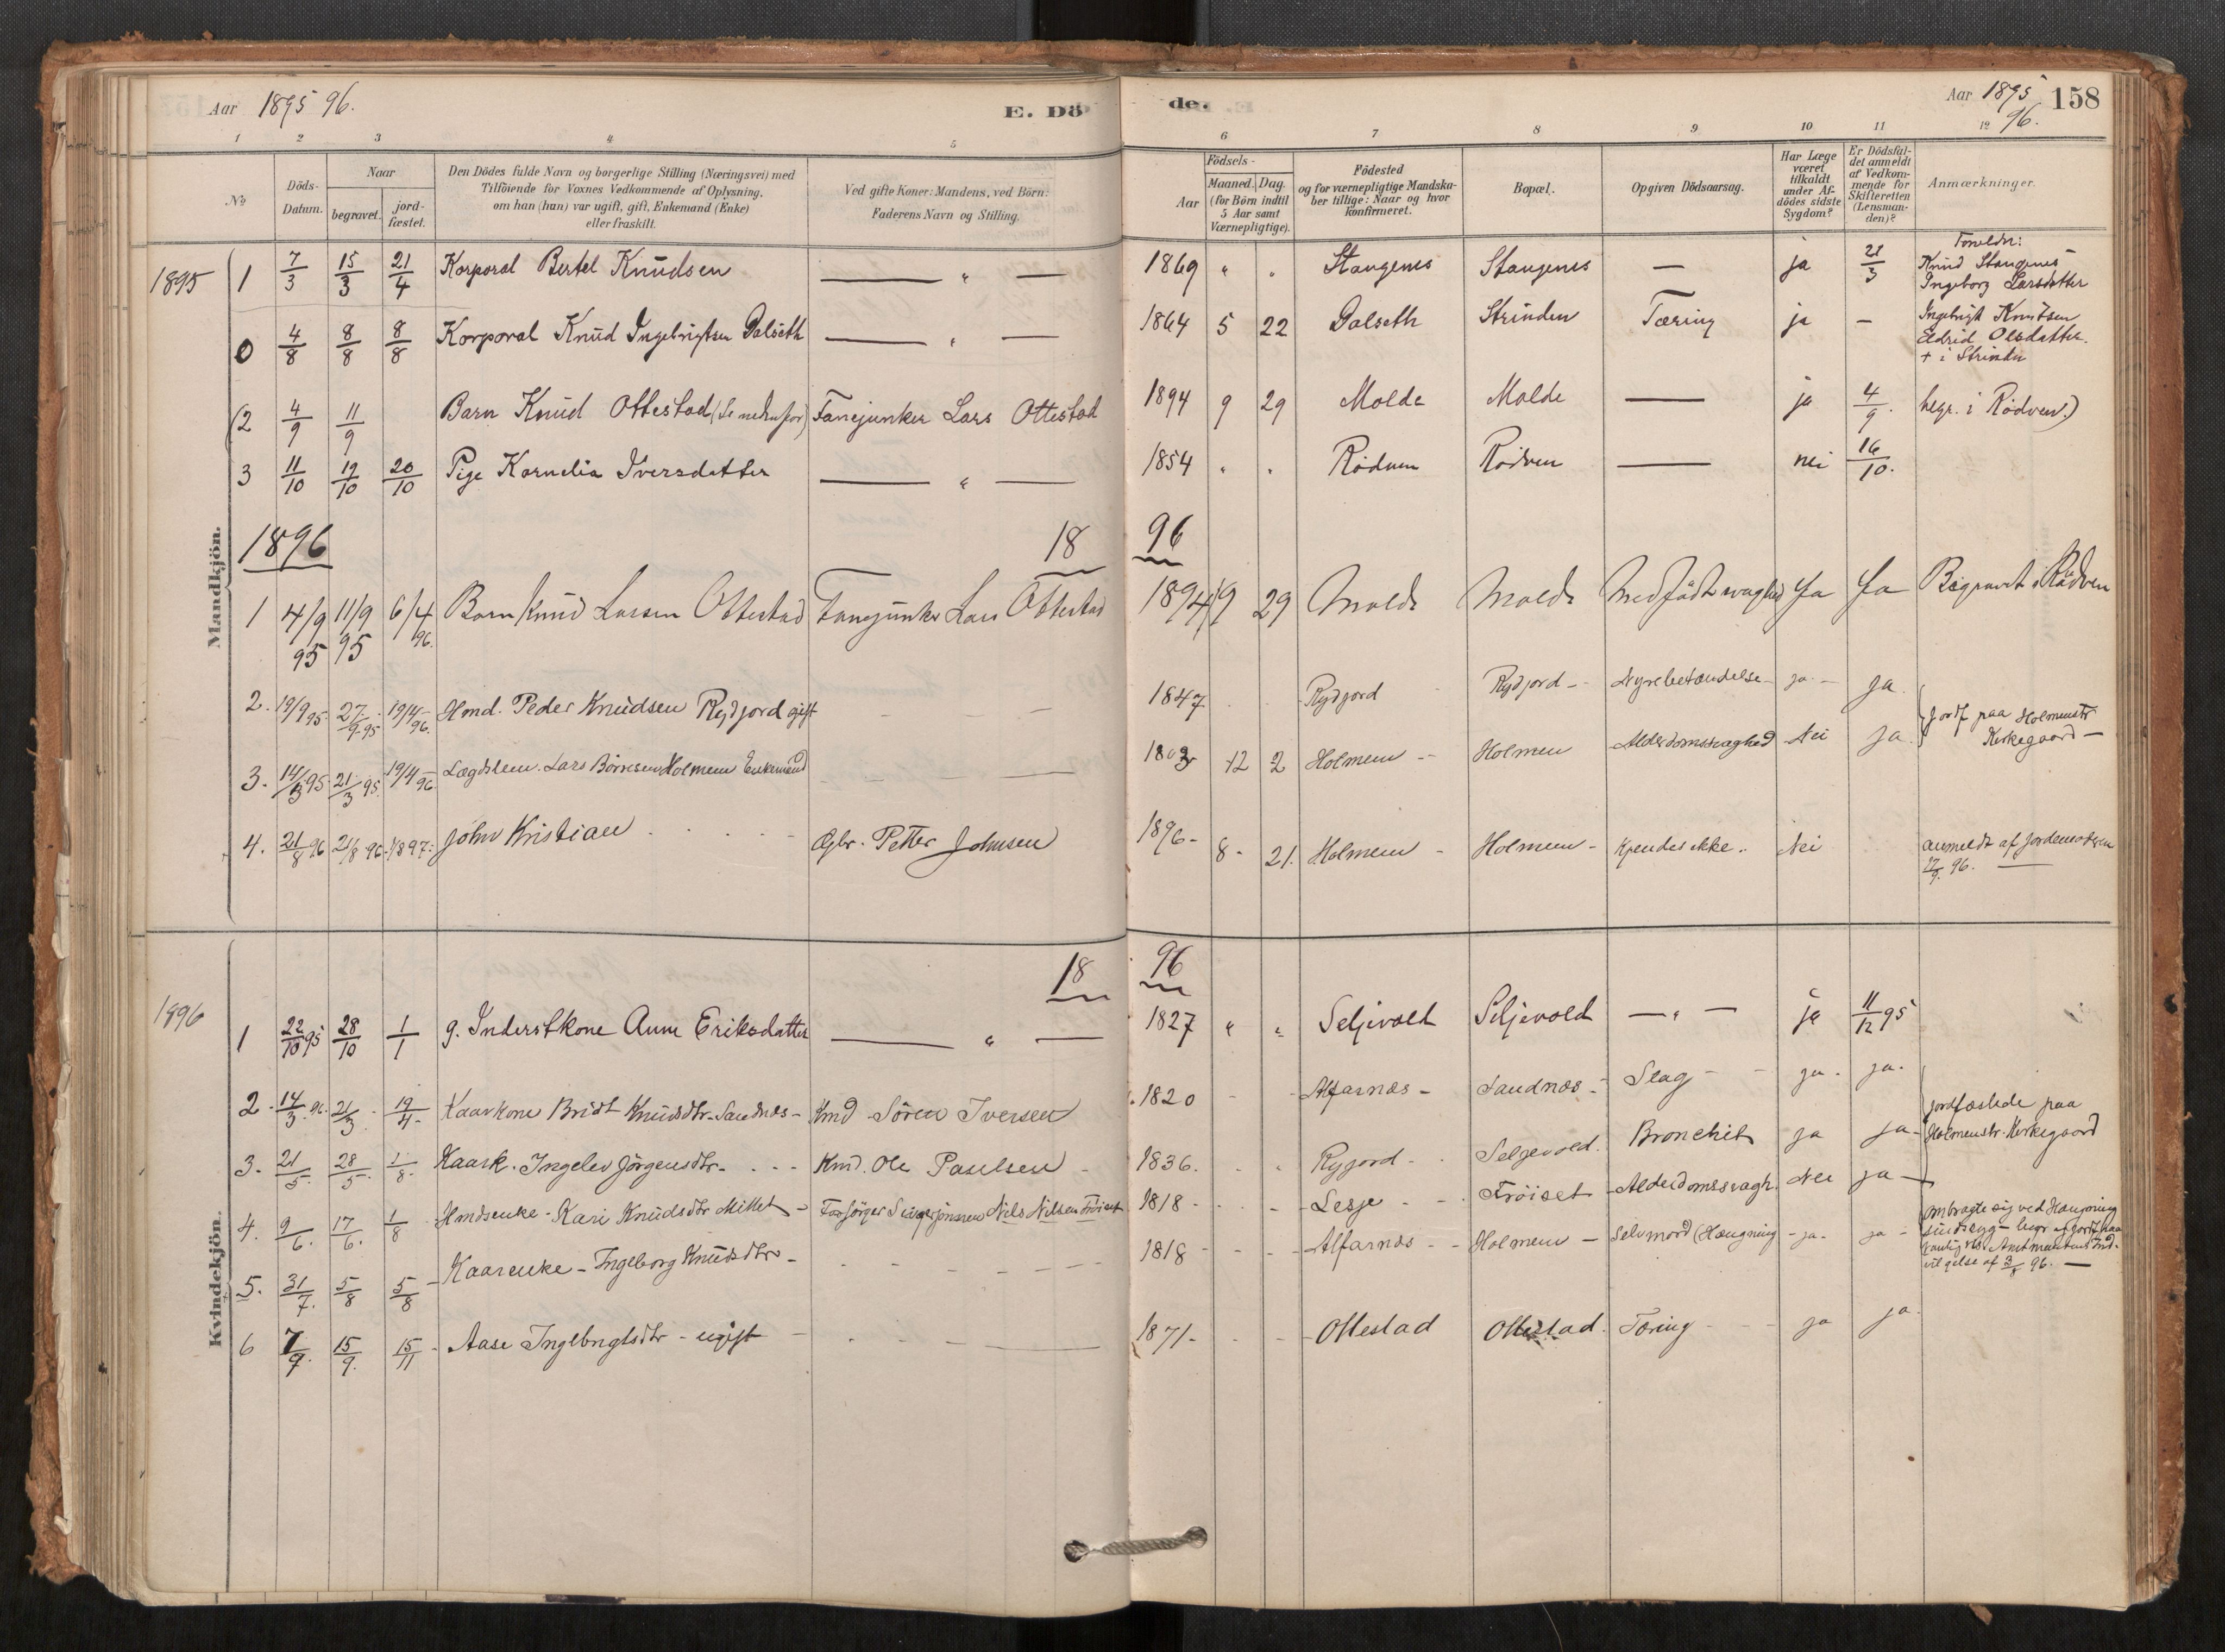 Aar 1895 96.
E. Dö
de.
Aar 1895 96. 158
1 2 3 4 5 6 7 8 9 10 11 12
No
Döds-Datum.
Naar
begravet.
jord-fæstet.
Den Dödes fulde Navn og borgerlige Stilling (Næringsvei) med
Tilföiende for Voxnes Vedkommende af Oplysning,
om han (hun) var ugift, gift, Enkemand (Enke)
eller fraskilt.
Ved gifte Koner: Mandens, ved Börn:
Faderens Navn og Stilling.
Födsels-
Aar
Maaned. Dag.
(for Börn indtil
5 Aar samt
Værnepligtige).
Födested
og for værnepligtige Mandska-
ber tillige: Naar og hvor
konfirmeret.
Bopæl.
Opgiven Dödsaarsag.
Har Læge
været
tilkaldt
under Af-
dödes sidste
Sygdom?
Er Dödsfal-
det anmeldt
af Vedkom-
mende for
Skifteretten
(Lensman-
den)?
Anmærkninger.
Mandkjön.
1895 1 7/3 15/3 21/4 Korporal Bertel Knudsen — " — 1869 " " Stangenes Stangenes — ja 21/3 Forældr: Knud Stangenes Ingeborg Larsdatter
0 4/8 8/8 8/8 Korporal Knud Ingebrigtsen Dalseth — " — 1864 5 22 Dalseth Strinden Tæring ja — Ingebrigt Knutsen Eldrid Olsdatter. + i Strinden
(2 4/9 11/9 Barn Knud Ottestad (Se nedenfor) Fanejunker Lars Ottestad 1894 9 29 Molde Molde — ja 4/9. begr. i Rödven.)
3 11/10 19/10 20/10 Pige Kornelia Iversdatter — " — 1854 " " Rödven Rödven — nei 16/10.
1896 18 96
1 4/9 95 11/9 95 6/4 96. Barn Knud Larsen Ottestad Fanejunker Lars Ottestad 1894 9 29 Molde Molde Medfödt svaghed Ja Ja Begravet i Rödven
2. 19/9 95. 27/9 95 19/4 96. Hmd. Peder Knudsen Rydjord gift - - - 1847 Rydjord Rydjord - Nyrebetændelse - ja - ja.
3. 14/3 95 21/3 95. 19/4 96 Lægdslem. Lars Börresen Holmem Enkemand - - 1803 12 2 Holmem - Holmem Alderdomssvaghed Nei ja. jordf paa Holmenstr Kirkegaard -
4. 21/8 96 21/8 96 John Kristian Gbr. Petter Johnsen 1896 - 8 - 21. Holmem - Holmem - Kjendes ikke. Nei anmeldt af Jordemoderen 17/9. 96.
Kvindekjön.
18 96
1896 1 22/10 95 28/10 1/1 g. Inderstkone Anne Eriksdatter — " — 1827 " " Seljevold Seljevold — " — ja 11/12 95
2 - 14/3 96 21/3 19/4 - Kaarkone Bridt Knudsdtr. Sandnæs - Kmd Sören Iversen 1820 - - Alfarnæs - Sandnæs - Slag - - ja - ja.
3. 21/5. 28/5. 1/8. Kaark. Ingelev Jörgensdtr. - - - Kmd. Ole Paulsen - 1836. - - Rygjord - - Selgevold. Bronchit ja ja - jordfæstede paa Holmenstr. Kirkegaard
4. 9/6. 17/6. 1/8 Hmdsenke - Kari Knudsdtr Mittet - Nils Nilsen Fröiset 1818 - - - Lesje - - Fröiset - Alderdomssvagh. Nei ja -
5. 31/7. 5/8 5/8 - Kaarenke - Ingeborg Knudsdtr - - - - - - 1818 - - - Alfarnæs - - Holmem - Selvmord (Hængning - ja - ja - ombragte sig ved Hængning sindssyg - Amtmandens Ind- vilgelse af 3/8 96. -
6 7/9. 15/9. 15/11 - Aase Ingebrigtsdtr - ugift - - - - 1871 - - - Ottestad Ottestad. Tæring - - - ja ja -